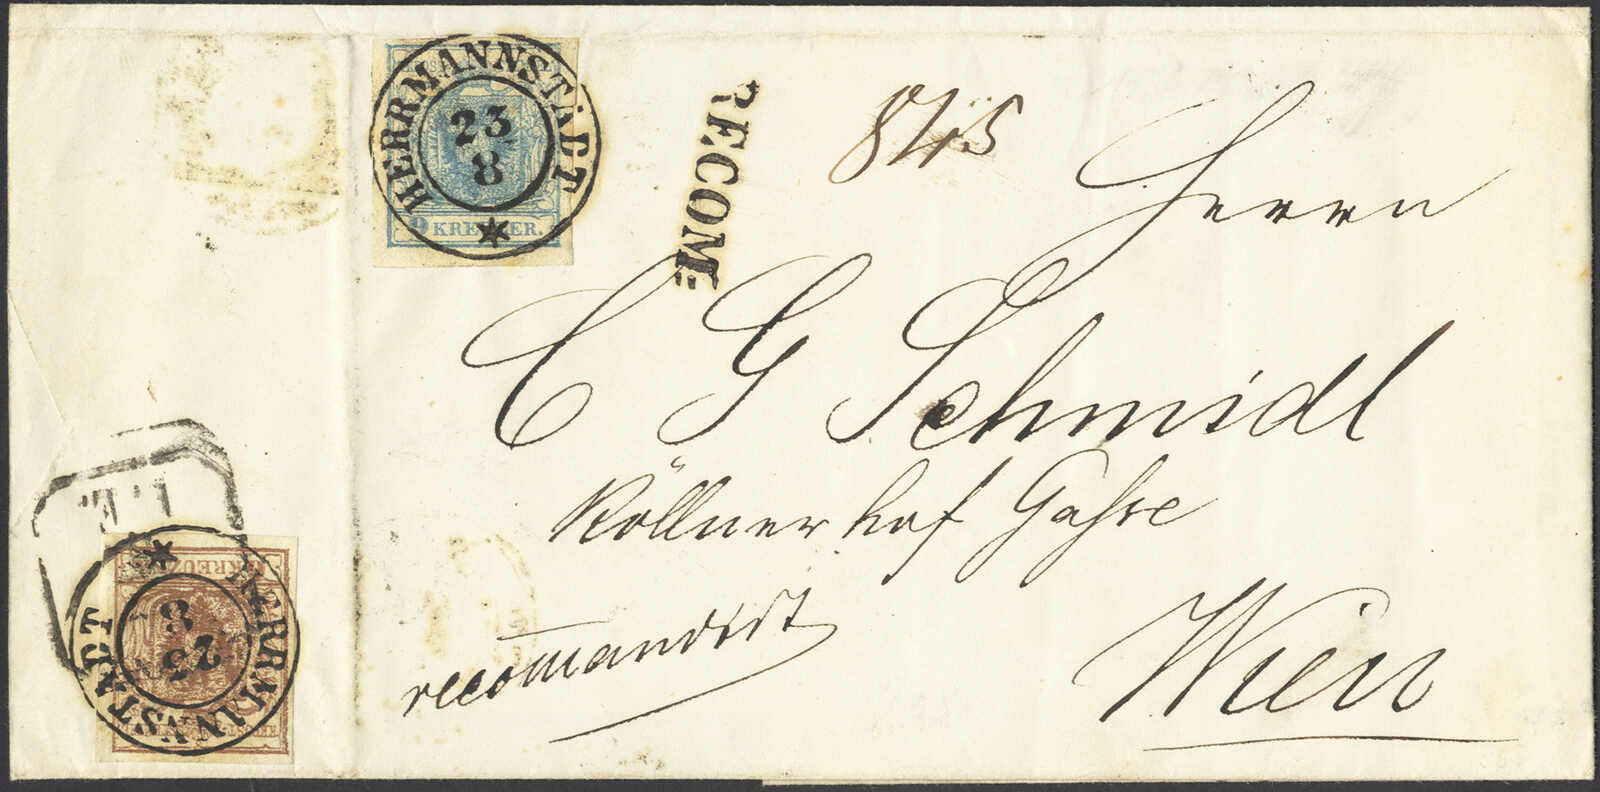 HERRMANNSTADT
23
8
9 KREUZER.
RECOM:
Herrn
C G Schmidl
Köllnerhof Gasse
Wien
recommandirt
HERRMANNSTADT
23
8
KREUZ